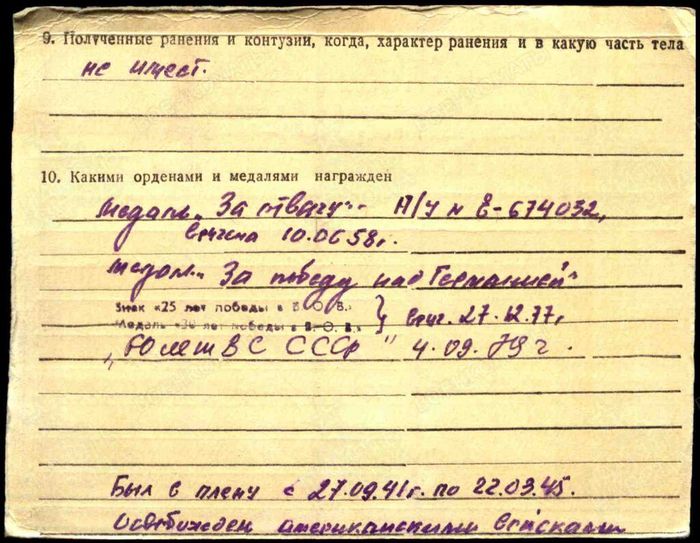 9. Полученные ранения и контузии, когда, характер ранения и в какую часть тела
не имеет.
10. Какими орденами и медалями награжден
Медаль „За отвагу" А/У N Е-674032,
вручена 10.06 58г.
Медаль „За победу над Германией"
Знак «25 лет победы в В. О. В.» } вруч. 27.12.77г
Медаль «30 лет победы в В. О. В.»
„60 лет ВС СССР" 4.09.79 г.
Был в плену с 27.09.41г. по 22.03.45.
Освобожден американскими войсками